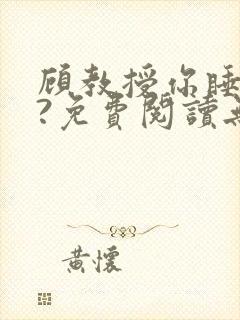 顾教授你睡
?免費閱讀
黃懷